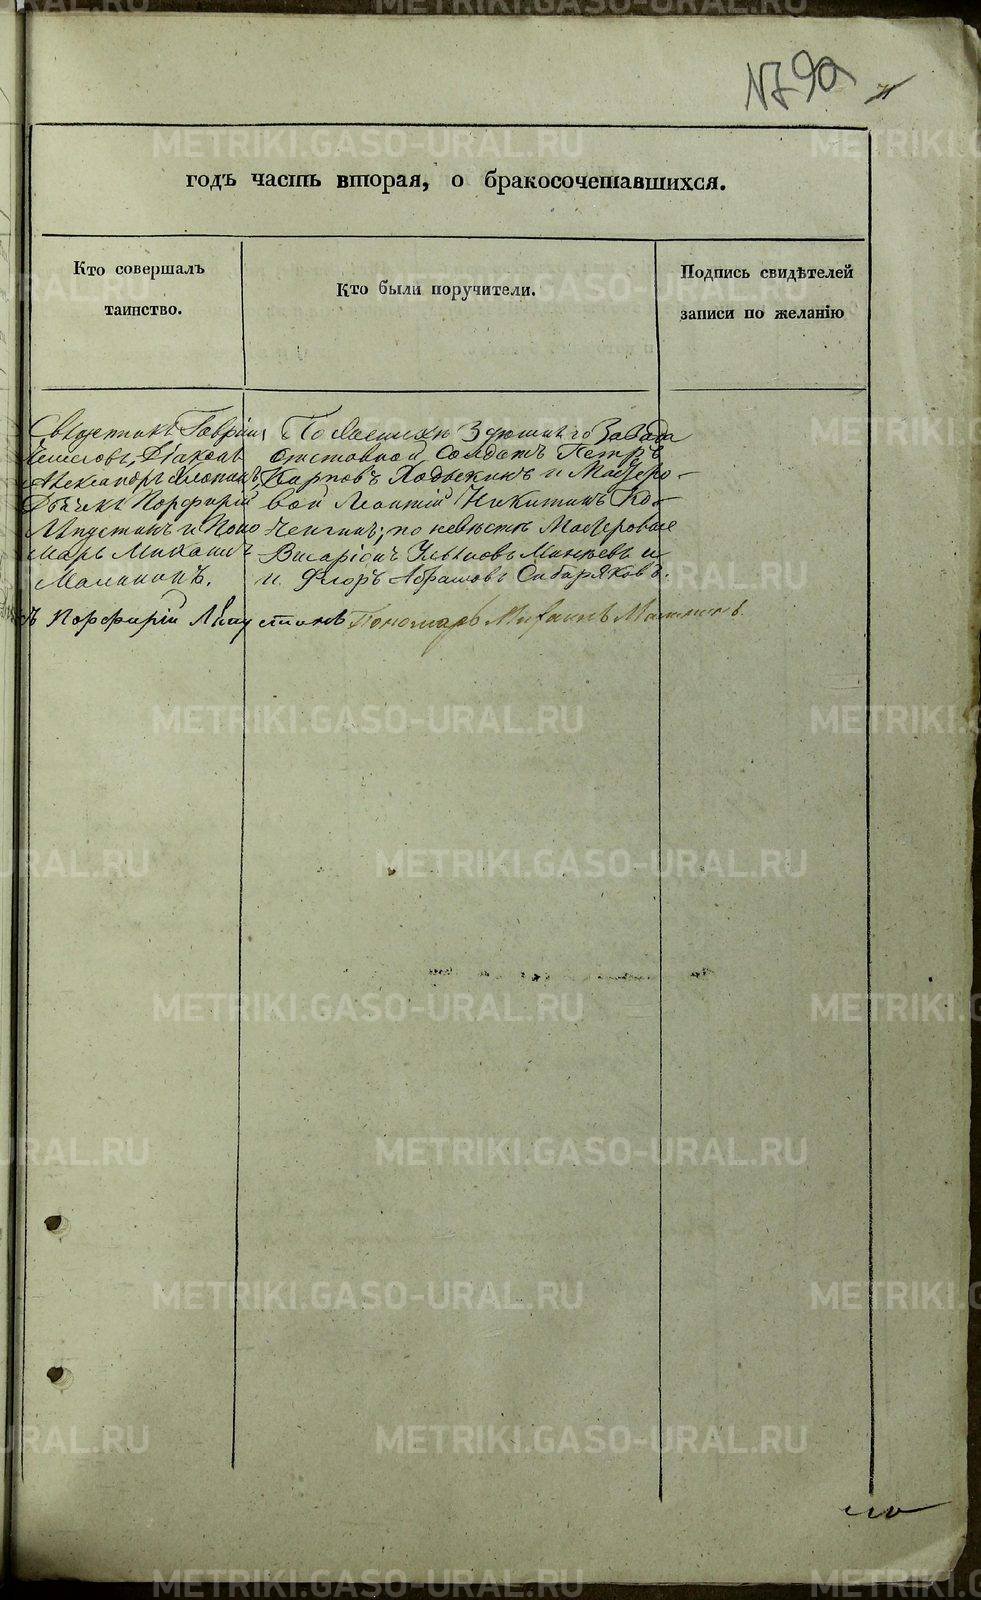 № 90
годъ часть вторая, о бракосочетавшихся.
Кто совершалъ
таинство.
Кто были поручители.
Подпись свидѣтелей
записи по желанію
Священникъ Гавріилъ
Діаконъ
Александръ
Дьячекъ Порфирій
Лѣпустинъ и Поно
марь Михаилъ
Малининъ.
По женихѣ завода
Отставной Солдатъ Петръ
Карповъ и Мастеро-
вой Леонтій Никитинъ Ко-
по невѣстѣ Мастеровые
Висаріонъ и
и Флоръ Абрамовъ Сибиряковъ.
ъ Порфирій Пономарь Михаилъ Малининъ.
METRIKI.GASO-URAL.RU